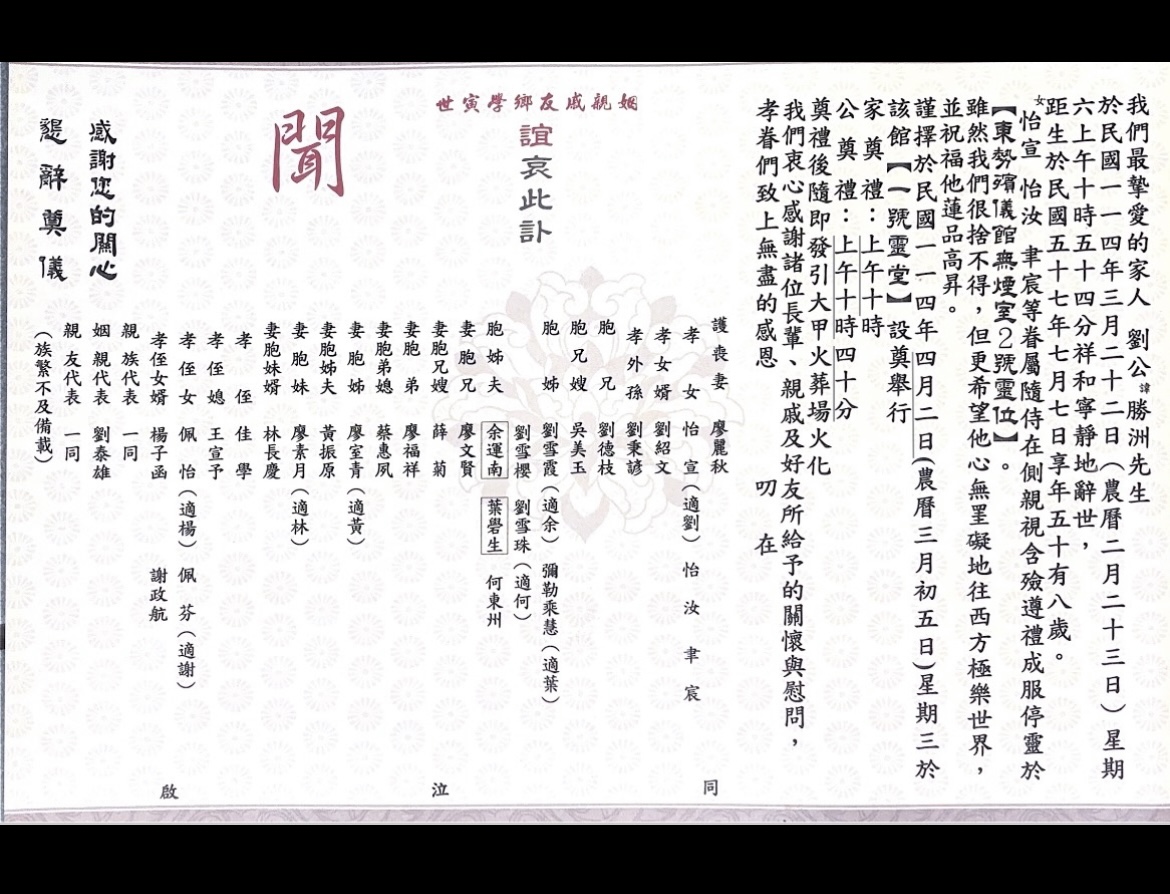 我們最摯愛的家人 劉公諱勝洲先生
於民國一一四年三月二十二日(農曆二月二十三日)星期
六上午十時五十四分祥和寧靜地辭世,
距生於民國五十七年七月七日享年五十有八歲。
女怡宣 怡汝 聿宸等眷屬隨侍在側親視含殮遵禮成服停靈於
【東勢殯儀館無煙室2號靈位】。
雖然我們很捨不得,但更希望他心無罣礙地往西方極樂世界,
並祝福他蓮品高昇。
謹擇於民國一一四年四月二日(農曆三月初五日)星期三於
該館【一號靈堂】設奠舉行
家奠禮:上午十時
公奠禮:上午十時四十分
奠禮後隨即發引大甲火葬場火化
我們衷心感謝諸位長輩、親戚及好友所給予的關懷與慰問,
孝眷們致上無盡的感恩 叨在
姻親戚友鄉學寅世
誼哀此訃
聞
護喪妻 廖麗秋
孝女 怡宣(適劉) 怡汝 聿宸
孝女婿 劉紹文
孝外孫 劉秉諺
胞兄 劉德枝
胞兄嫂 吳美玉
胞姊 劉雪霞(適余) 彌勒乘慧(適葉)
劉雪櫻 劉雪珠(適何)
胞姊夫 余運南 葉學生 何東州
妻胞兄 廖文賢
妻胞兄嫂 薛菊
妻胞弟 廖福祥
妻胞弟媳 蔡惠夙
妻胞姊 廖室青(適黃)
妻胞姊夫 黃振原
妻胞妹 廖素月(適林)
妻胞妹婿 林長慶
孝侄 佳學
孝侄媳 王宣予
孝侄女 佩怡(適楊) 佩芬(適謝)
孝侄女婿 楊子函 謝政航
親族代表 一同
姻親代表 劉泰雄
親友代表 一同
(族繁不及備載)
同泣啟
感謝您的關心
懇辭奠儀